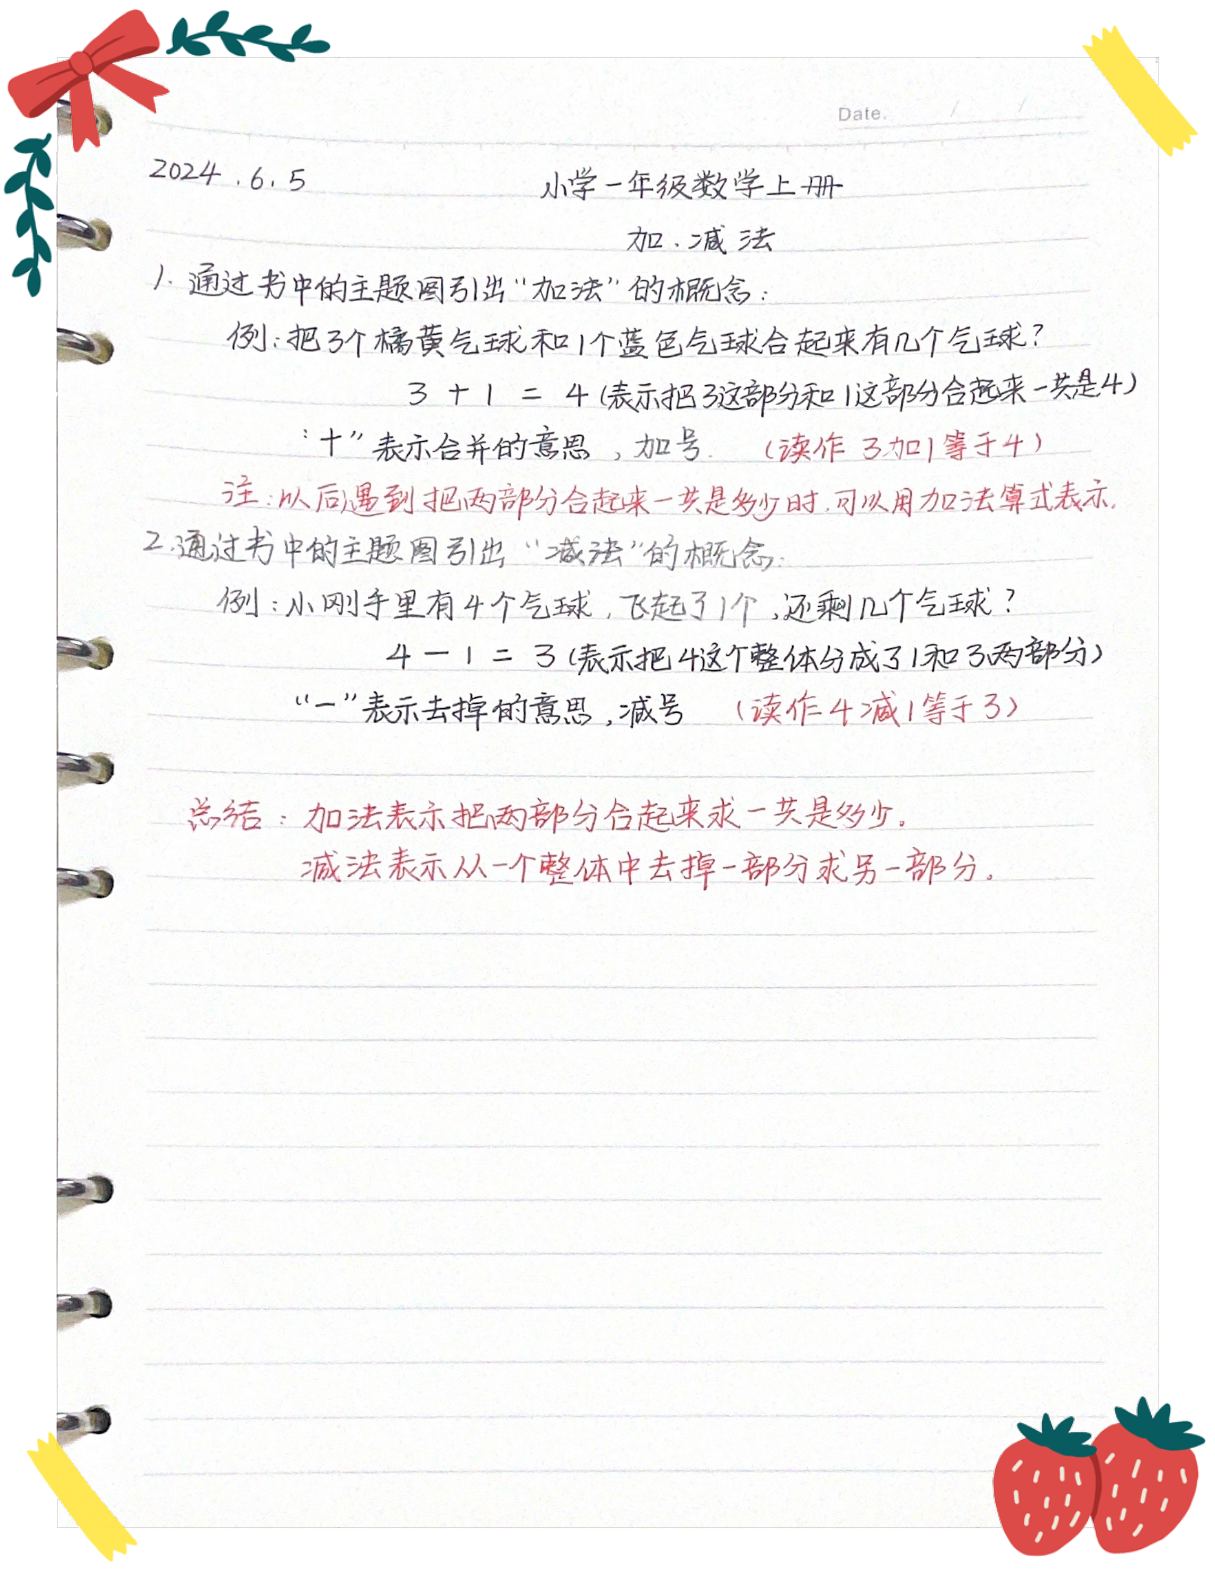 Date.    /    /
2024.6.5    小学一年级数学上册
加.减法
1.通过书中的主题图引出“加法”的概念:
例:把3个橘黄气球和1个蓝色气球合起来有几个气球?
3+1=4(表示把3这部分和1这部分合起来一共是4)
“十”表示合并的意思,加号.(读作3加1等于4)
注:以后遇到把两部分合起来一共是多少时.可以用加法算式表示.
2.通过书中的主题图引出“减法”的概念:
例:小刚手里有4个气球,飞起了1个,还剩几个气球?
4-1=3(表示把4这个整体分成了1和3两部分)
“一”表示去掉的意思,减号(读作4减1等于3)
总结:加法表示把两部分合起来求一共是多少。
减法表示从一个整体中去掉一部分求另一部分。